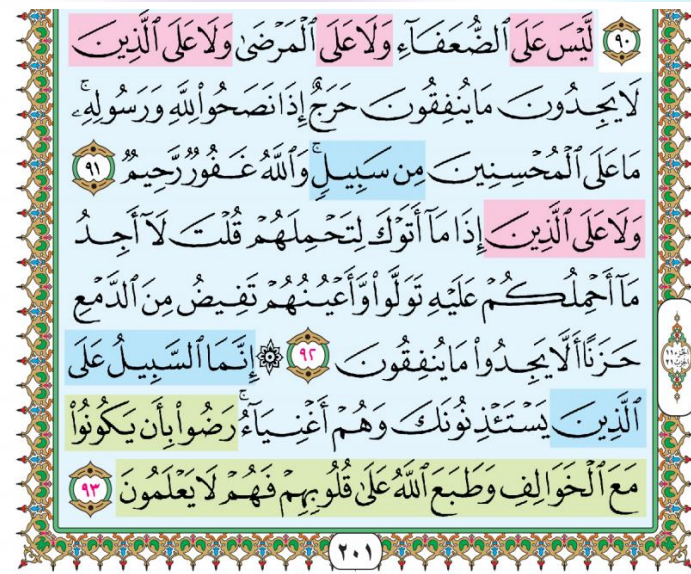 ٩٠ لَّيۡسَ عَلَى ٱلضُّعَفَآءِ وَلَا عَلَى ٱلۡمَرۡضَىٰ وَلَا عَلَى ٱلَّذِينَ
لَا يَجِدُونَ مَا يُنفِقُونَ حَرَجٌ إِذَا نَصَحُواْ لِلَّهِ وَرَسُولِهِۦۚ
مَا عَلَى ٱلۡمُحۡسِنِينَ مِن سَبِيلٖۚ وَٱللَّهُ غَفُورٞ رَّحِيمٞ ٩١
وَلَا عَلَى ٱلَّذِينَ إِذَا مَآ أَتَوۡكَ لِتَحۡمِلَهُمۡ قُلۡتَ لَآ أَجِدُ
مَآ أَحۡمِلُكُمۡ عَلَيۡهِ تَوَلَّواْ وَّأَعۡيُنُهُمۡ تَفِيضُ مِنَ ٱلدَّمۡعِ
حَزَنًا أَلَّا يَجِدُواْ مَا يُنفِقُونَ ٩٢ ۞ إِنَّمَا ٱلسَّبِيلُ عَلَى
ٱلَّذِينَ يَسۡتَـٔۡذِنُونَكَ وَهُمۡ أَغۡنِيَآءُۚ رَضُواْ بِأَن يَكُونُواْ
مَعَ ٱلۡخَوَالِفِ وَطَبَعَ ٱللَّهُ عَلَىٰ قُلُوبِهِمۡ فَهُمۡ لَا يَعۡلَمُونَ ٩٣
٢٠١